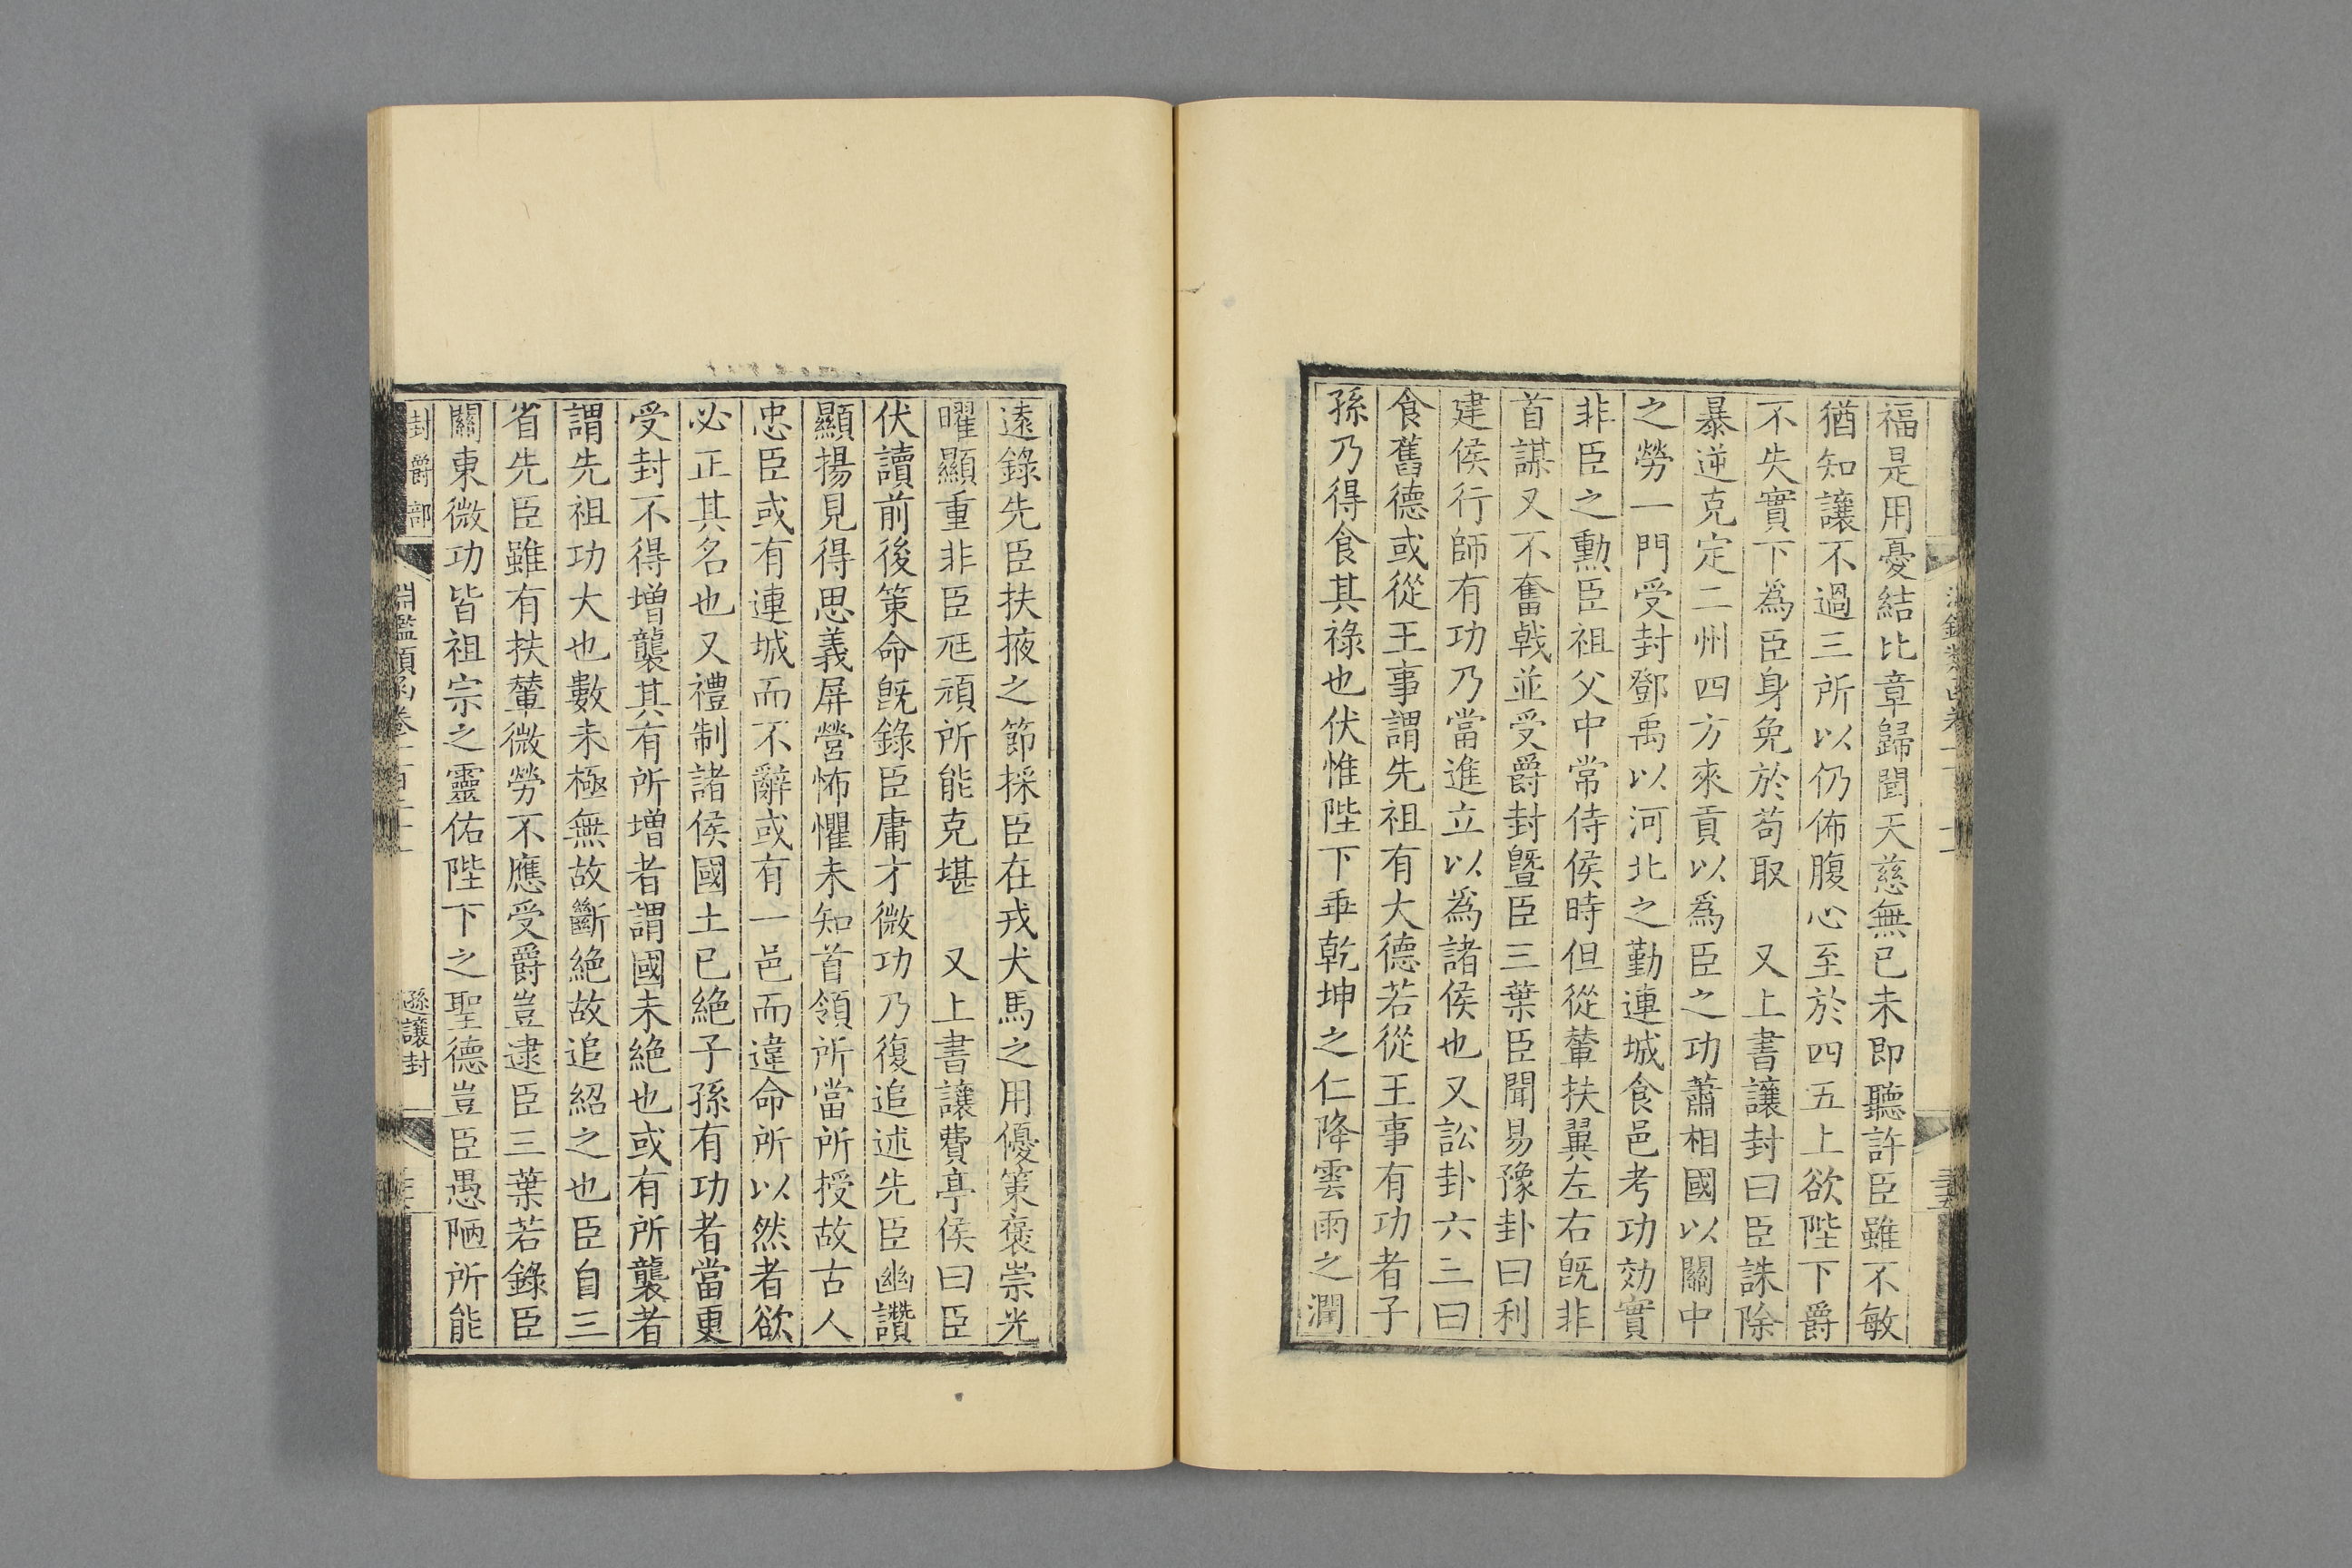 福是用憂結比章歸聞天慈無已未即聽許臣雖不敏
猶知讓不過三所以仍佈腹心至於四五上欲陛下爵
不失實下爲臣身免於苟取　又上書讓封曰臣誅除
暴逆克定二州四方來貢以爲臣之功蕭相國以關中
之勞一門受封鄧禹以河北之勤連城食邑考功効實
非臣之勳臣祖父中常侍侯時但從輦扶翼左右旣非
首謀又不奮戟並受爵封曁臣三葉臣聞易豫卦曰利
建侯行師有功乃當進立以爲諸侯也又訟卦六三曰
食舊德或從王事謂先祖有大德若從王事有功者子
孫乃得食其祿也伏惟陛下乖乾坤之仁降雲雨之潤
遠錄先臣扶掖之節採臣在戎犬馬之用優策褒崇光
曜顯重非臣尫頑所能克堪　又上書讓費亭侯曰臣
伏讀前後策命旣錄臣庸才微功乃復追述先臣幽讚
顯揚見得思義屏營怖懼未知首領所當所授故古人
忠臣或有連城而不辭或有一邑而違命所以然者欲
必正其名也又禮制諸侯國土已絕子孫有功者當更
受封不得增襲其有所增者謂國未絕也或有所襲者
謂先祖功大也數未極無故斷絕故追紹之也臣自三
省先臣雖有扶輦微勞不應受爵豈逮臣三葉若錄臣
關東微功皆祖宗之靈佑陛下之聖德豈臣愚陋所能
封爵部
淵鑑類函卷一百二十
遜讓封